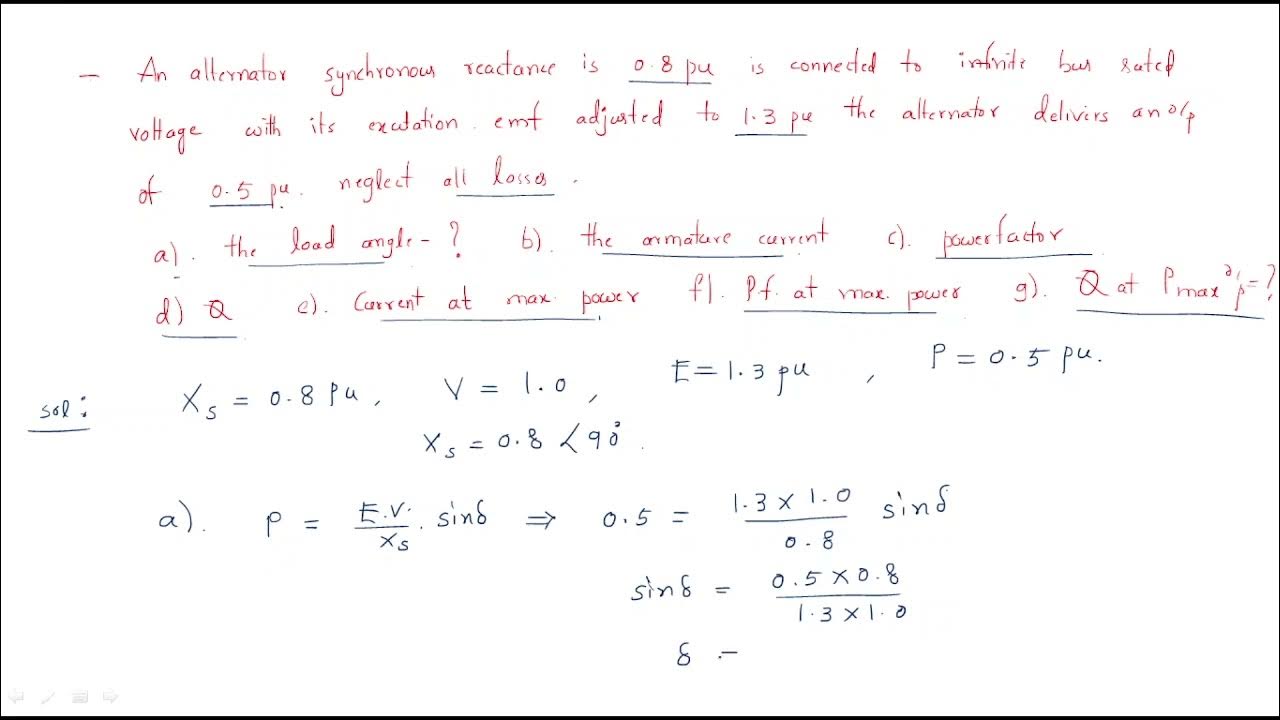 — An alternator synchronous reactance is 0.8 pu is connected to infinite bus rated
voltage with its excutation. emf adjusted to 1.3 pu the alternator delivers an o/p
of 0.5 pu. neglect all losses.
a). the load angle - ? b). the armature current c). powerfactor
d) Q e). Current at max. power f). P.f. at max. power g). Q at Pmax o/p = ?
sol: Xs = 0.8 pu, V = 1.0, E = 1.3 pu, P = 0.5 pu.
Xs = 0.8 ∠90°.
a). P = E.V./Xs . sinδ ⇒ 0.5 = 1.3 × 1.0/0.8 sinδ
sinδ = 0.5 × 0.8/1.3 × 1.0
δ =